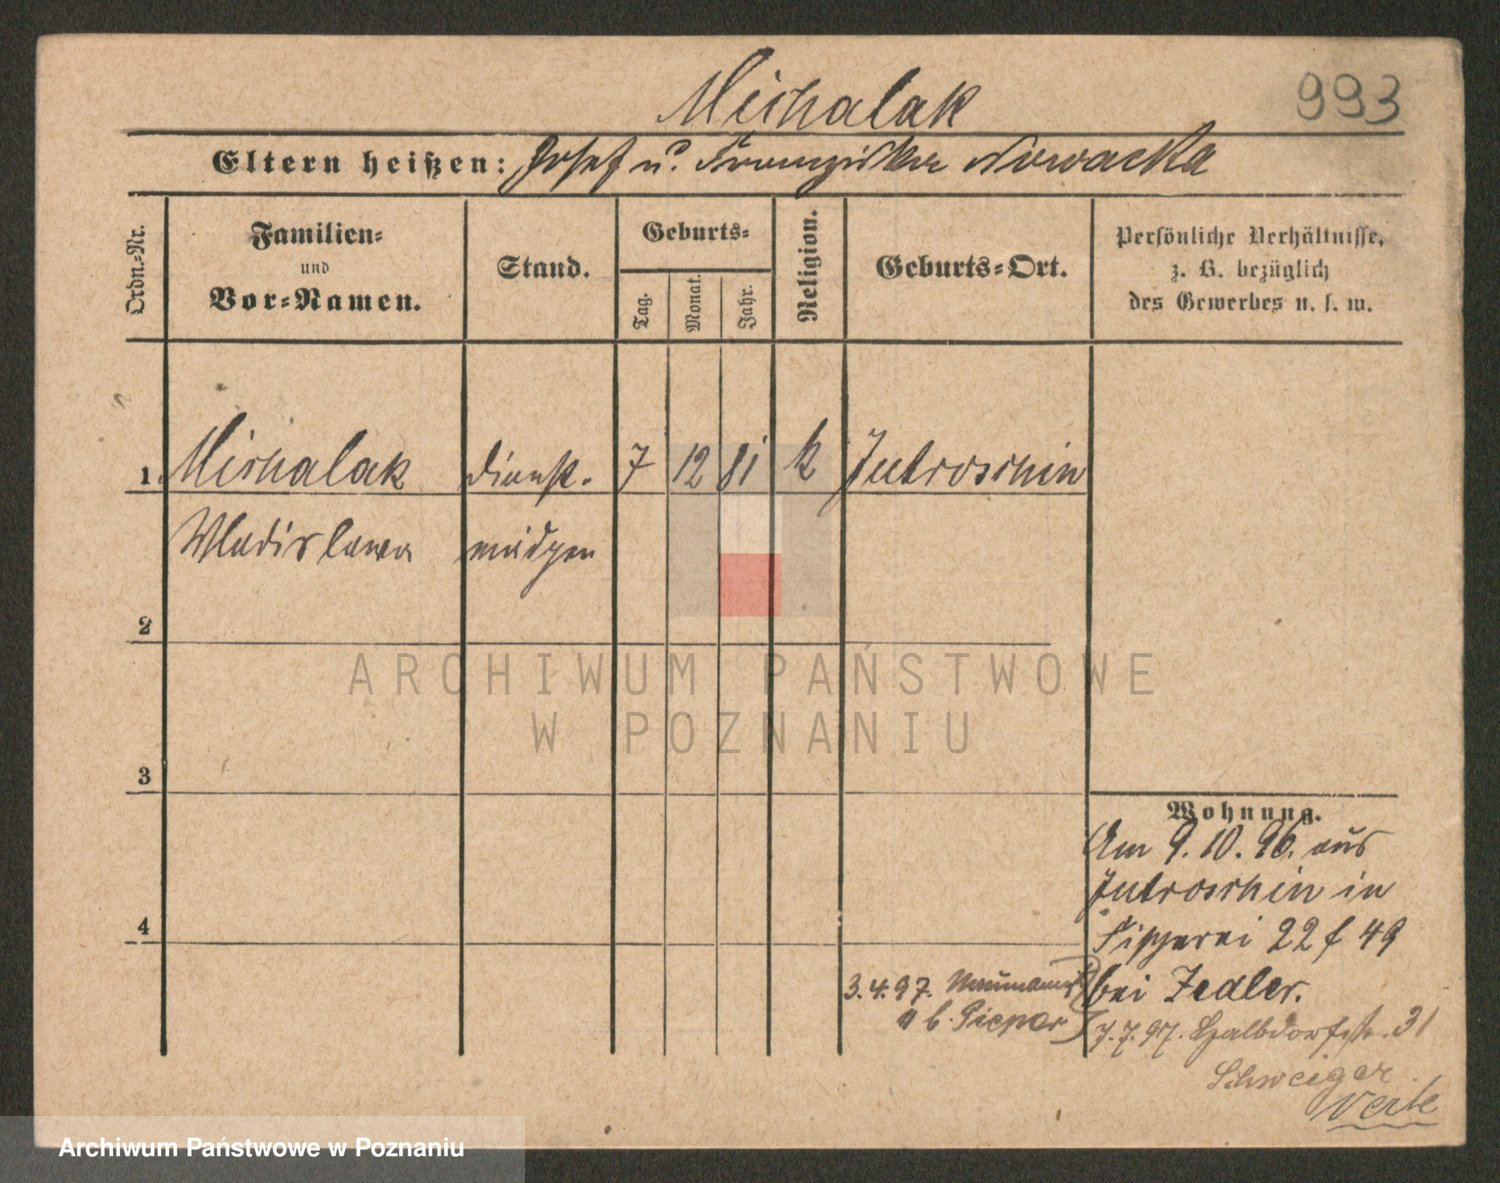 Michalak
993
Eltern heißen: Josef u. Franziska Nowacka
Ordn.-Nr.
Familien-
und
Vor-Namen.
Stand.
Geburts-
Tag.
Monat.
Jahr.
Religion.
Geburts-Ort.
Persönliche Verhältnisse,
z. B. bezüglich
des Gewerbes u. s. w.
1. Michalak Dienst- 7 12 81 k Jutroschin
Wladislawa mädchen
2
3
4
ARCHIWUM PAŃSTWOWE
W POZNANIU
Wohnung.
Am 9.10.96. aus
Jutroschin in
Fischerei 22 f 49
bei Zedler.
3.4.97. Naumannstr
4 b. Piepor
7.7.97. Halbdorfstr. 31
Schweiger
Archiwum Państwowe w Poznaniu